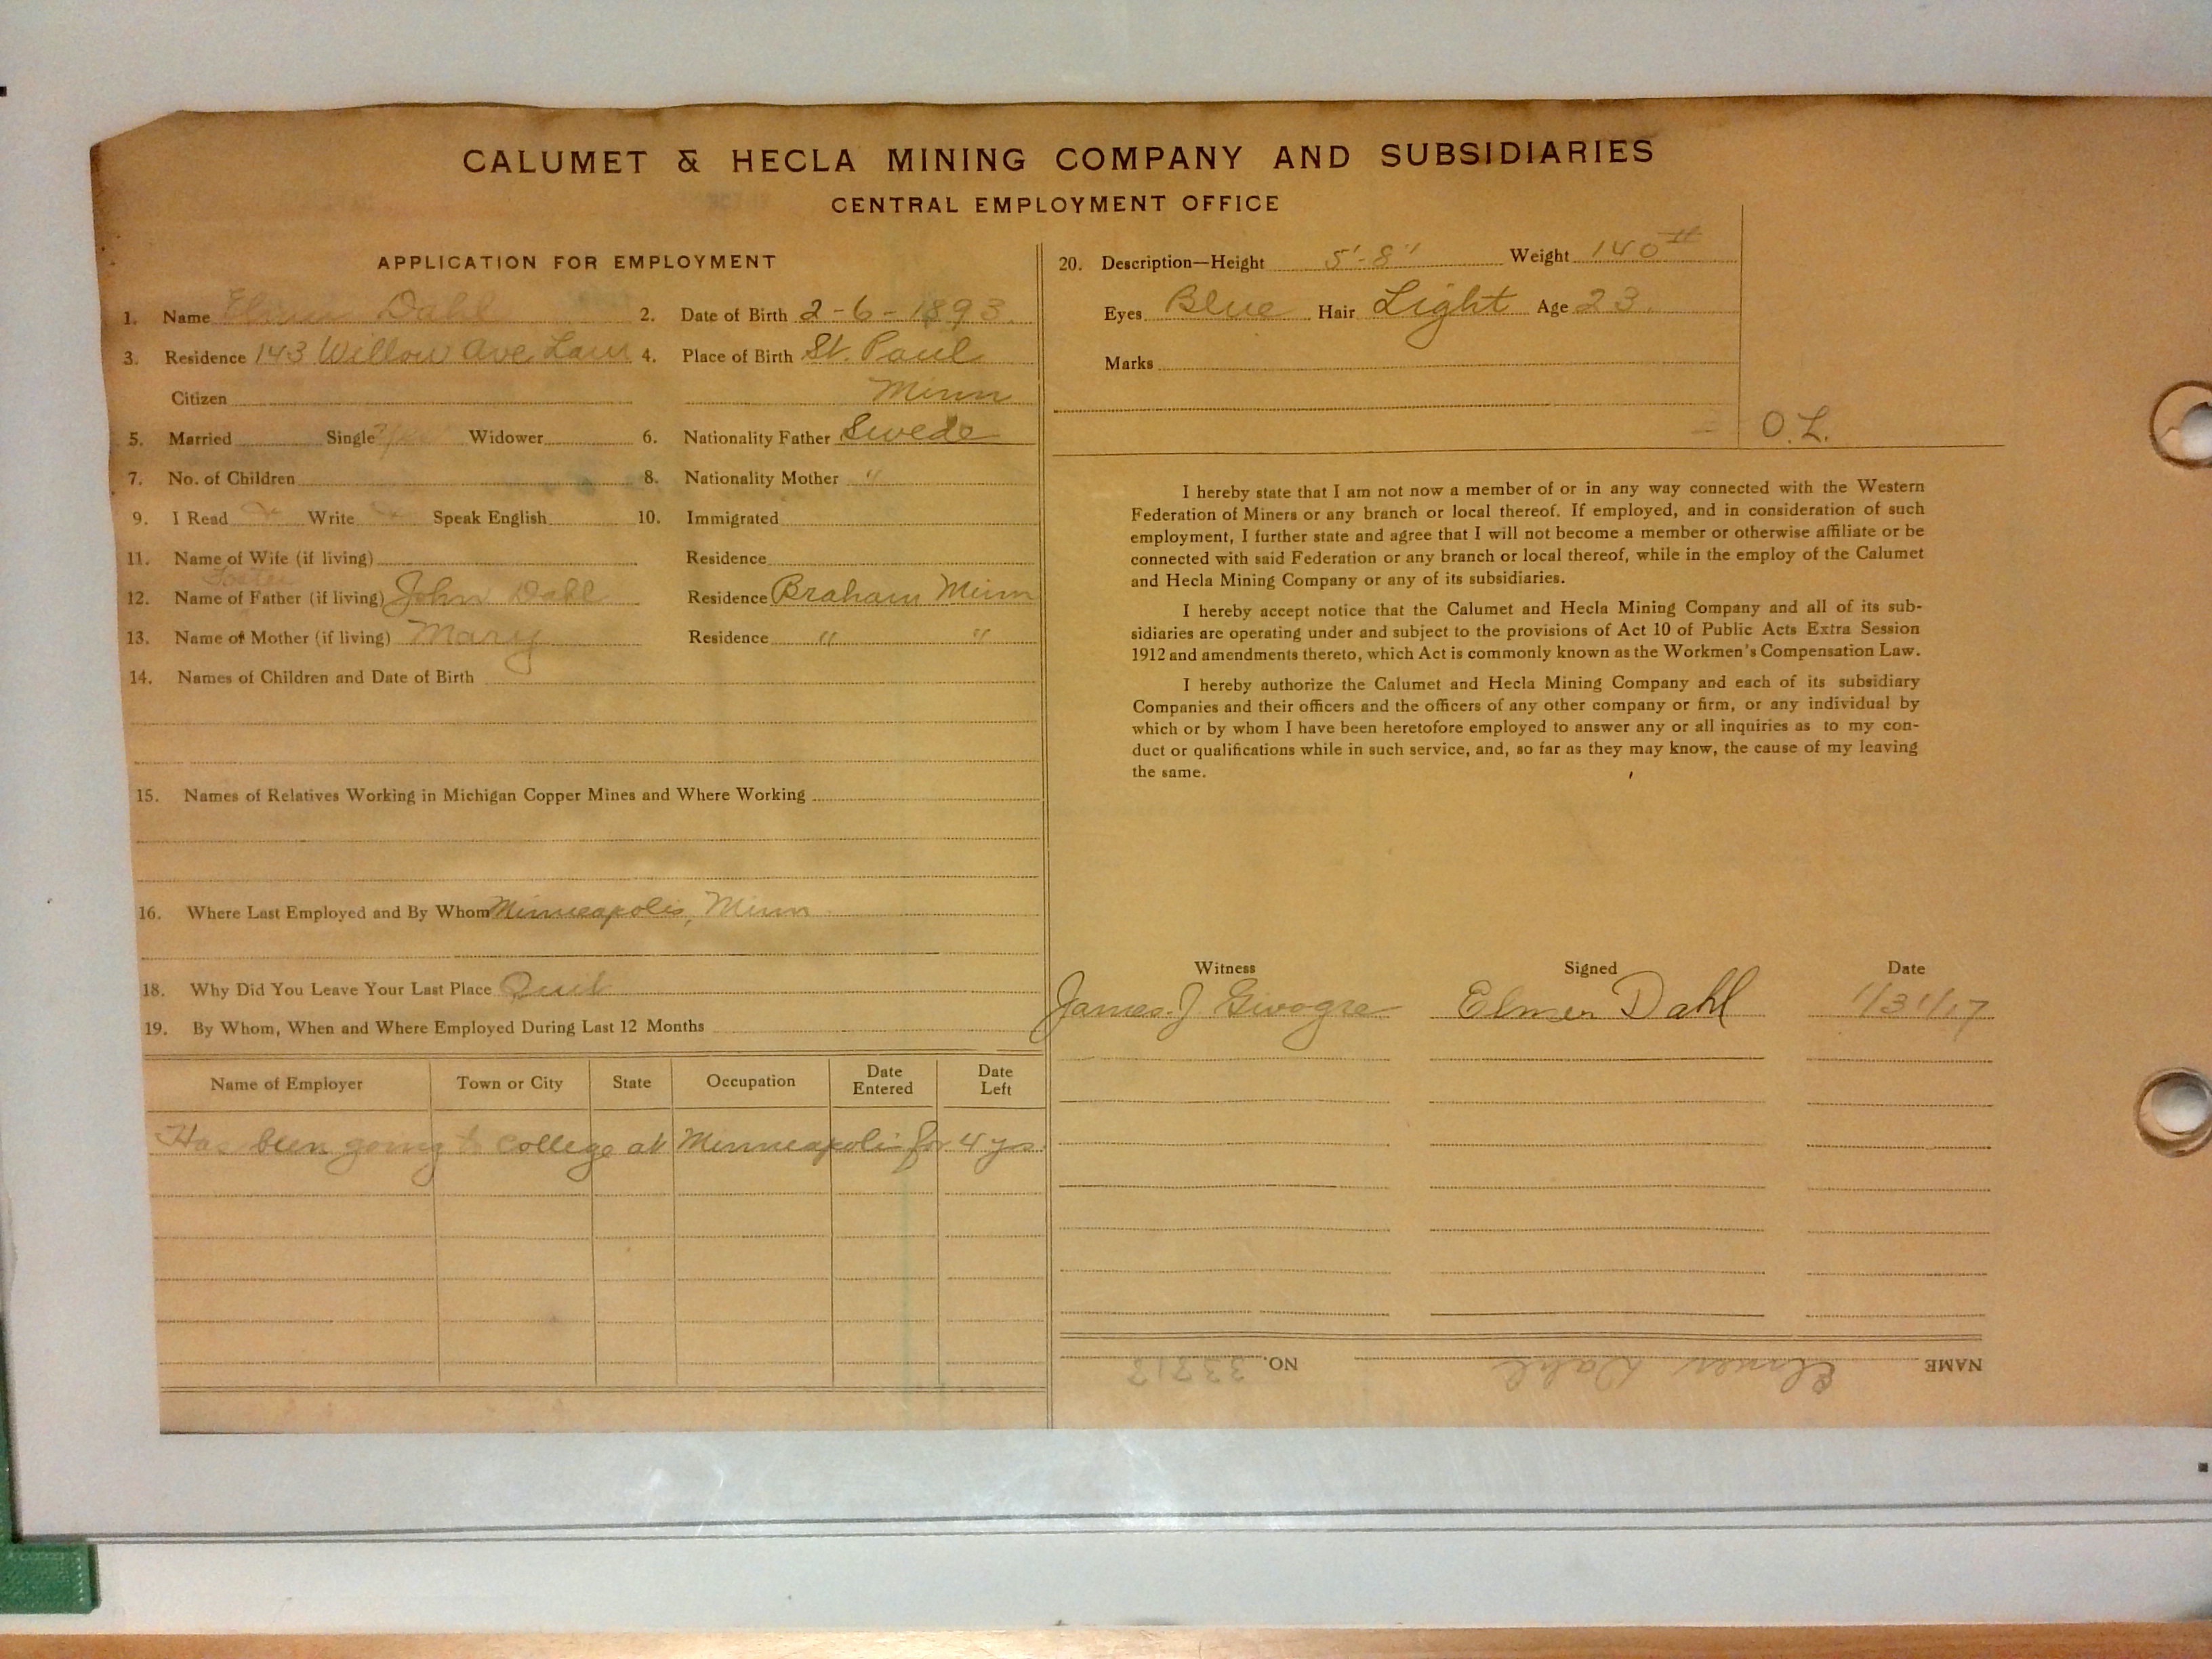 CALUMET & HECLA MINING COMPANY AND SUBSIDIARIES
CENTRAL EMPLOYMENT OFFICE
APPLICATION FOR EMPLOYMENT
1. Name Elmer Dahl 2. Date of Birth 2-6-1893.
3. Residence 143 Willow Ave Laur 4. Place of Birth St. Paul
Citizen Minn
5. Married Single Yes Widower 6. Nationality Father Swede
7. No. of Children 8. Nationality Mother "
9. I Read Write Speak English 10. Immigrated
11. Name of Wife (if living) Residence
Foster
12. Name of Father (if living) John Dahl Residence Braham Minn
13. Name of Mother (if living) Mary Residence " "
14. Names of Children and Date of Birth
15. Names of Relatives Working in Michigan Copper Mines and Where Working
16. Where Last Employed and By Whom Minneapolis, Minn
18. Why Did You Leave Your Last Place Quit
19. By Whom, When and Where Employed During Last 12 Months
Name of Employer Town or City State Occupation Date Entered Date Left
Has been going to college at Minneapolis for 4 yrs.
20. Description—Height 5'-8" Weight 140#
Eyes Blue Hair Light Age 23.
Marks
O.L.
I hereby state that I am not now a member of or in any way connected with the Western
Federation of Miners or any branch or local thereof. If employed, and in consideration of such
employment, I further state and agree that I will not become a member or otherwise affiliate or be
connected with said Federation or any branch or local thereof, while in the employ of the Calumet
and Hecla Mining Company or any of its subsidiaries.
I hereby accept notice that the Calumet and Hecla Mining Company and all of its sub-
sidiaries are operating under and subject to the provisions of Act 10 of Public Acts Extra Session
1912 and amendments thereto, which Act is commonly known as the Workmen's Compensation Law.
I hereby authorize the Calumet and Hecla Mining Company and each of its subsidiary
Companies and their officers and the officers of any other company or firm, or any individual by
which or by whom I have been heretofore employed to answer any or all inquiries as to my con-
duct or qualifications while in such service, and, so far as they may know, the cause of my leaving
the same.
Witness Signed Date
James. J. Elmer Dahl 1/31/17
NAME Elmer Dahl NO. 33717